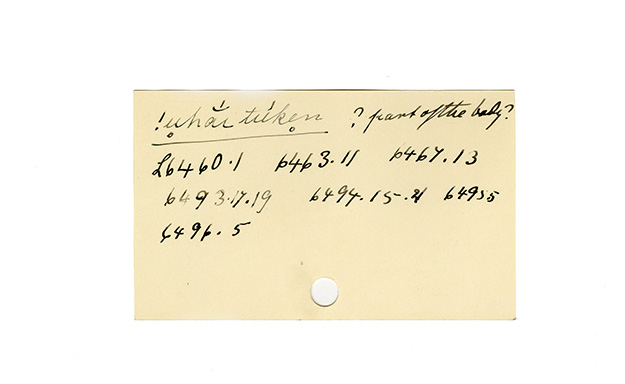 !ụhăi túkẹn ? part of the body?
L6460.1 6463.11 6467.13
6493.17.19 6494.15.21 64955
6496.5